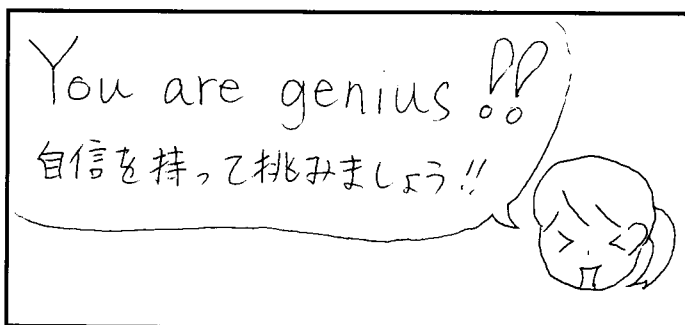 You are genius !!
自信を持って挑みましょう!!